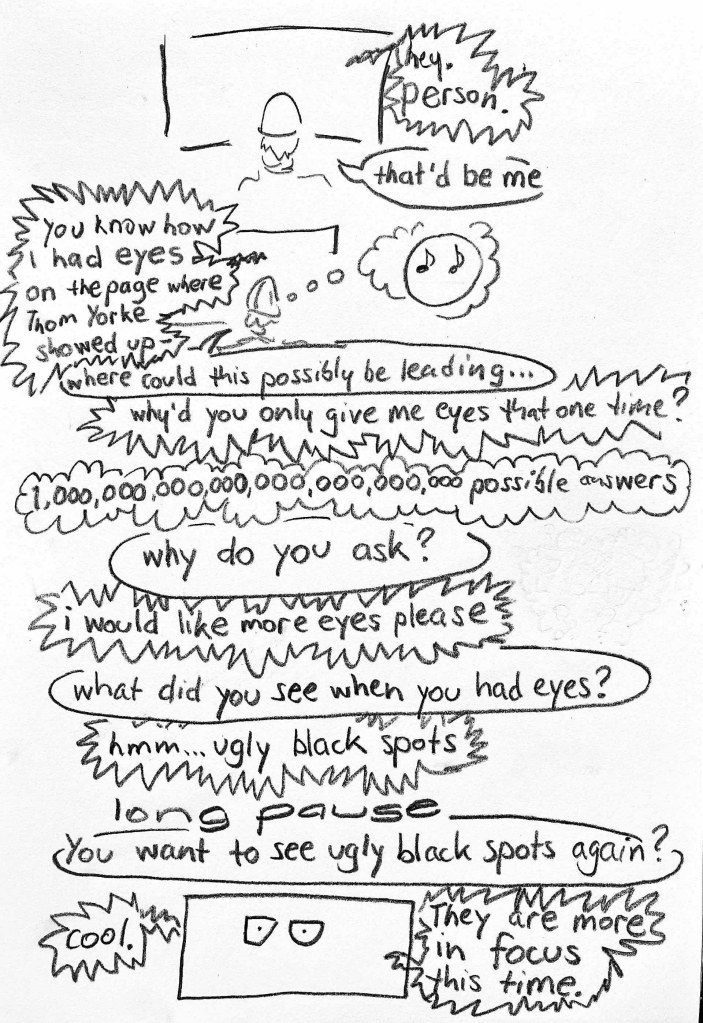 hey.
person.
that'd be me
you know how
i had eyes
on the page where
Thom Yorke
showed up-
where could this possibly be leading...
why'd you only give me eyes that one time?
1,000,000,000,000,000,000,000,000 possible answers
why do you ask?
i would like more eyes please
what did you see when you had eyes?
hmm... ugly black spots
long pause
You want to see ugly black spots again?
cool.
They are more
in focus
this time.